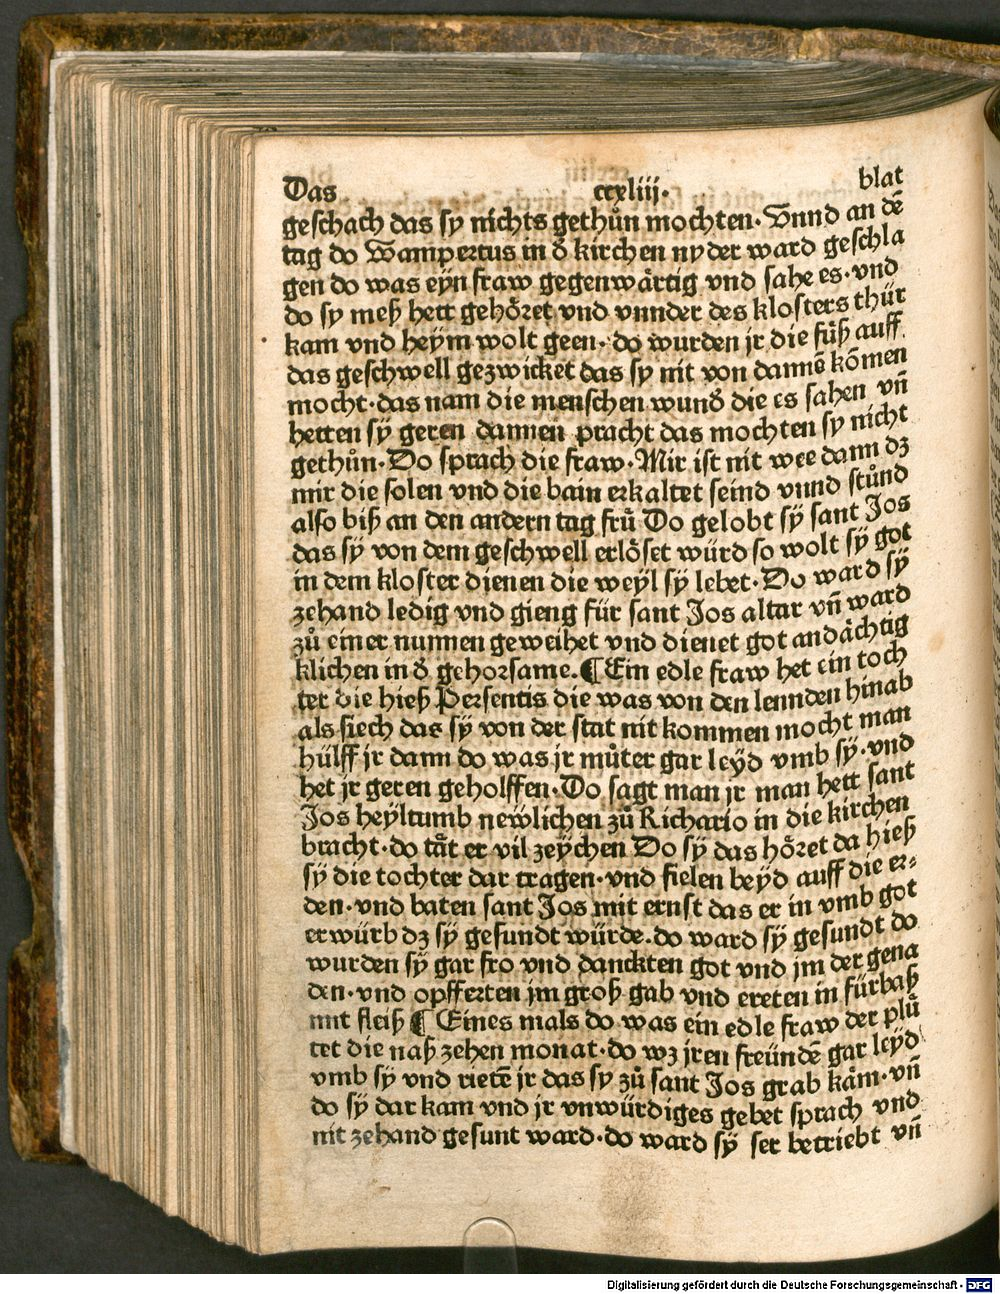 Das ccxliij. blat
geschach das sy nichts gethůn mochten. Vnnd an dē
tag do Wampertus in d̕ kirchen nyder ward geschla
gen do was eÿn fraw gegenwaͤrtig vnd sahe es. vnd
do sy meß hett gehoͤret vnd vnnder des klosters thür
kam vnd heÿm wolt geen. do wurden jr die fuͤß auff
das geschwell gezwicket das sy nit von dannē kōmen
mocht. das nam die menschen wund̕ die es sahen vñ
hetten sÿ geren dannen pracht das mochten sy nicht
gethůn. Do sprach die fraw. Mir ist nit wee dann dz
mir die solen vnd die bain erkaltet seind vnnd stůnd
also biß an den andern tag fruͤ Do gelobt sÿ sant Jos
das sÿ von dem geschwell erloͤset würd so wolt sÿ got
in dem kloster dienen die weÿl sÿ lebet. Do ward sÿ
zehand ledig vnd gieng für sant Jos altar vñ ward
zů einer nunnen geweihet vnd dienet got andaͤchtig
klichen in d̕ gehorsame. ¶ Ein edle fraw het ein toch
ter die hieß Persentis die was von den lennden hinab
als siech das sÿ von der stat nit kommen mocht man
hülff jr dann do was jr můter gar leÿd vmb sÿ. vnd
het jr geren geholffen. Do sagt man jr man hett sant
Jos heÿltumb newlichen zů Richario in die kirchen
bracht. do taͤt er vil zeÿchen Do sÿ das hoͤret da hieß
sÿ die tochter dar tragen. vnd fielen beÿd auff die er⸗
den. vnd baten sant Jos mit ernst das er in vmb got
erwürb dz sÿ gesundt würde. do ward sÿ gesundt do
wurden sÿ gar fro vnd danckten got vnd jm der gena
den. vnd opfferten jm groß gab vnd ereten in fürbaß
mit fleiß ¶ Eines mals do was ein edle fraw der plů
tet die naß zehen monat. do wz jren freündē gar leÿd
vmb sÿ vnd rietē jr das sy zů sant Jos grab kaͤm. vñ
do sÿ dar kam vnd jr vnwürdiges gebet sprach vnd
nit zehand gesunt ward. do ward sÿ ser betriebt vñ
Digitalisierung gefördert durch die Deutsche Forschungsgemeinschaft - DFG